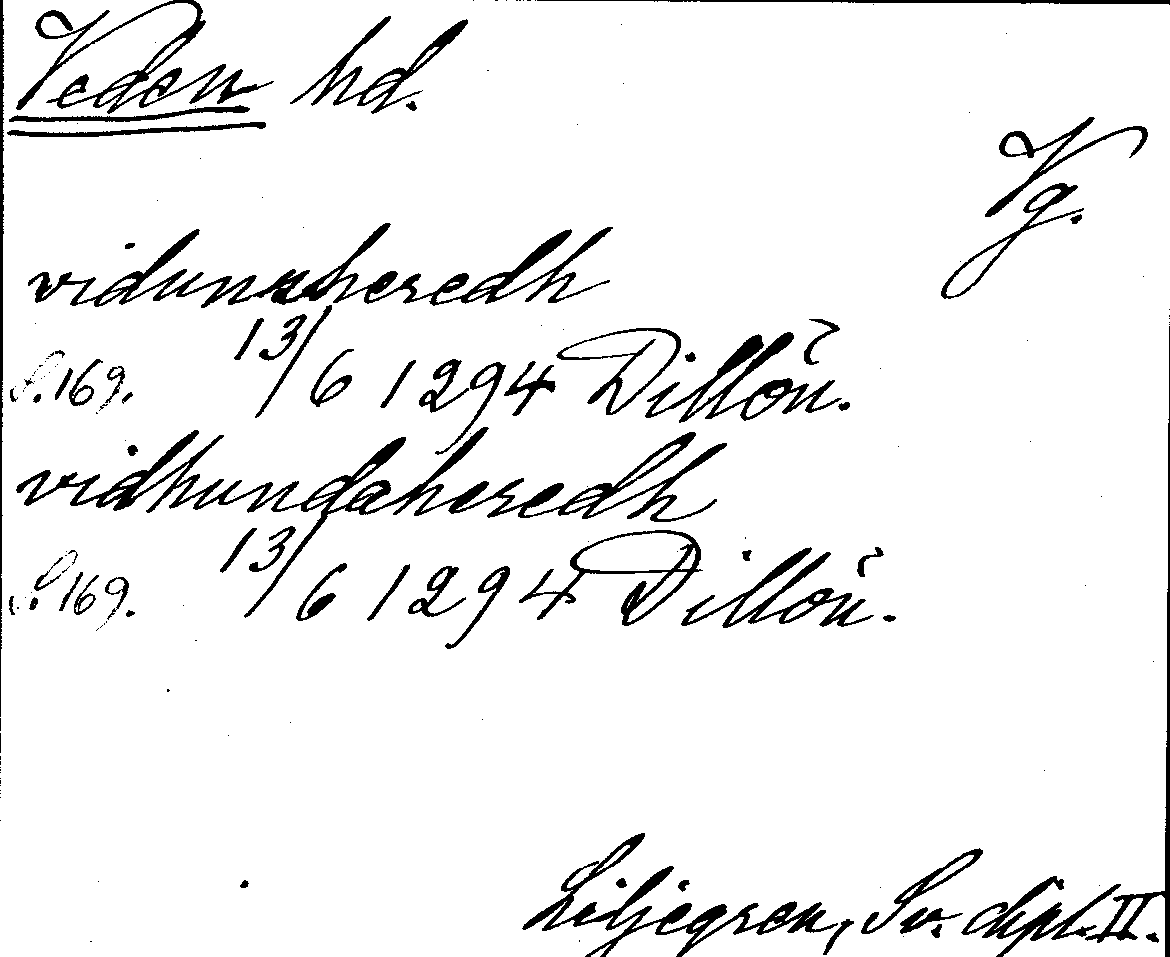 Veden hd.
Vg.
vidunæheredh
S. 169. 13/6 1294 Dillöü.
vidhundaheredh
S. 169. 13/6 1294 Dillöü.
Liljegren, Sv. dipl. II.